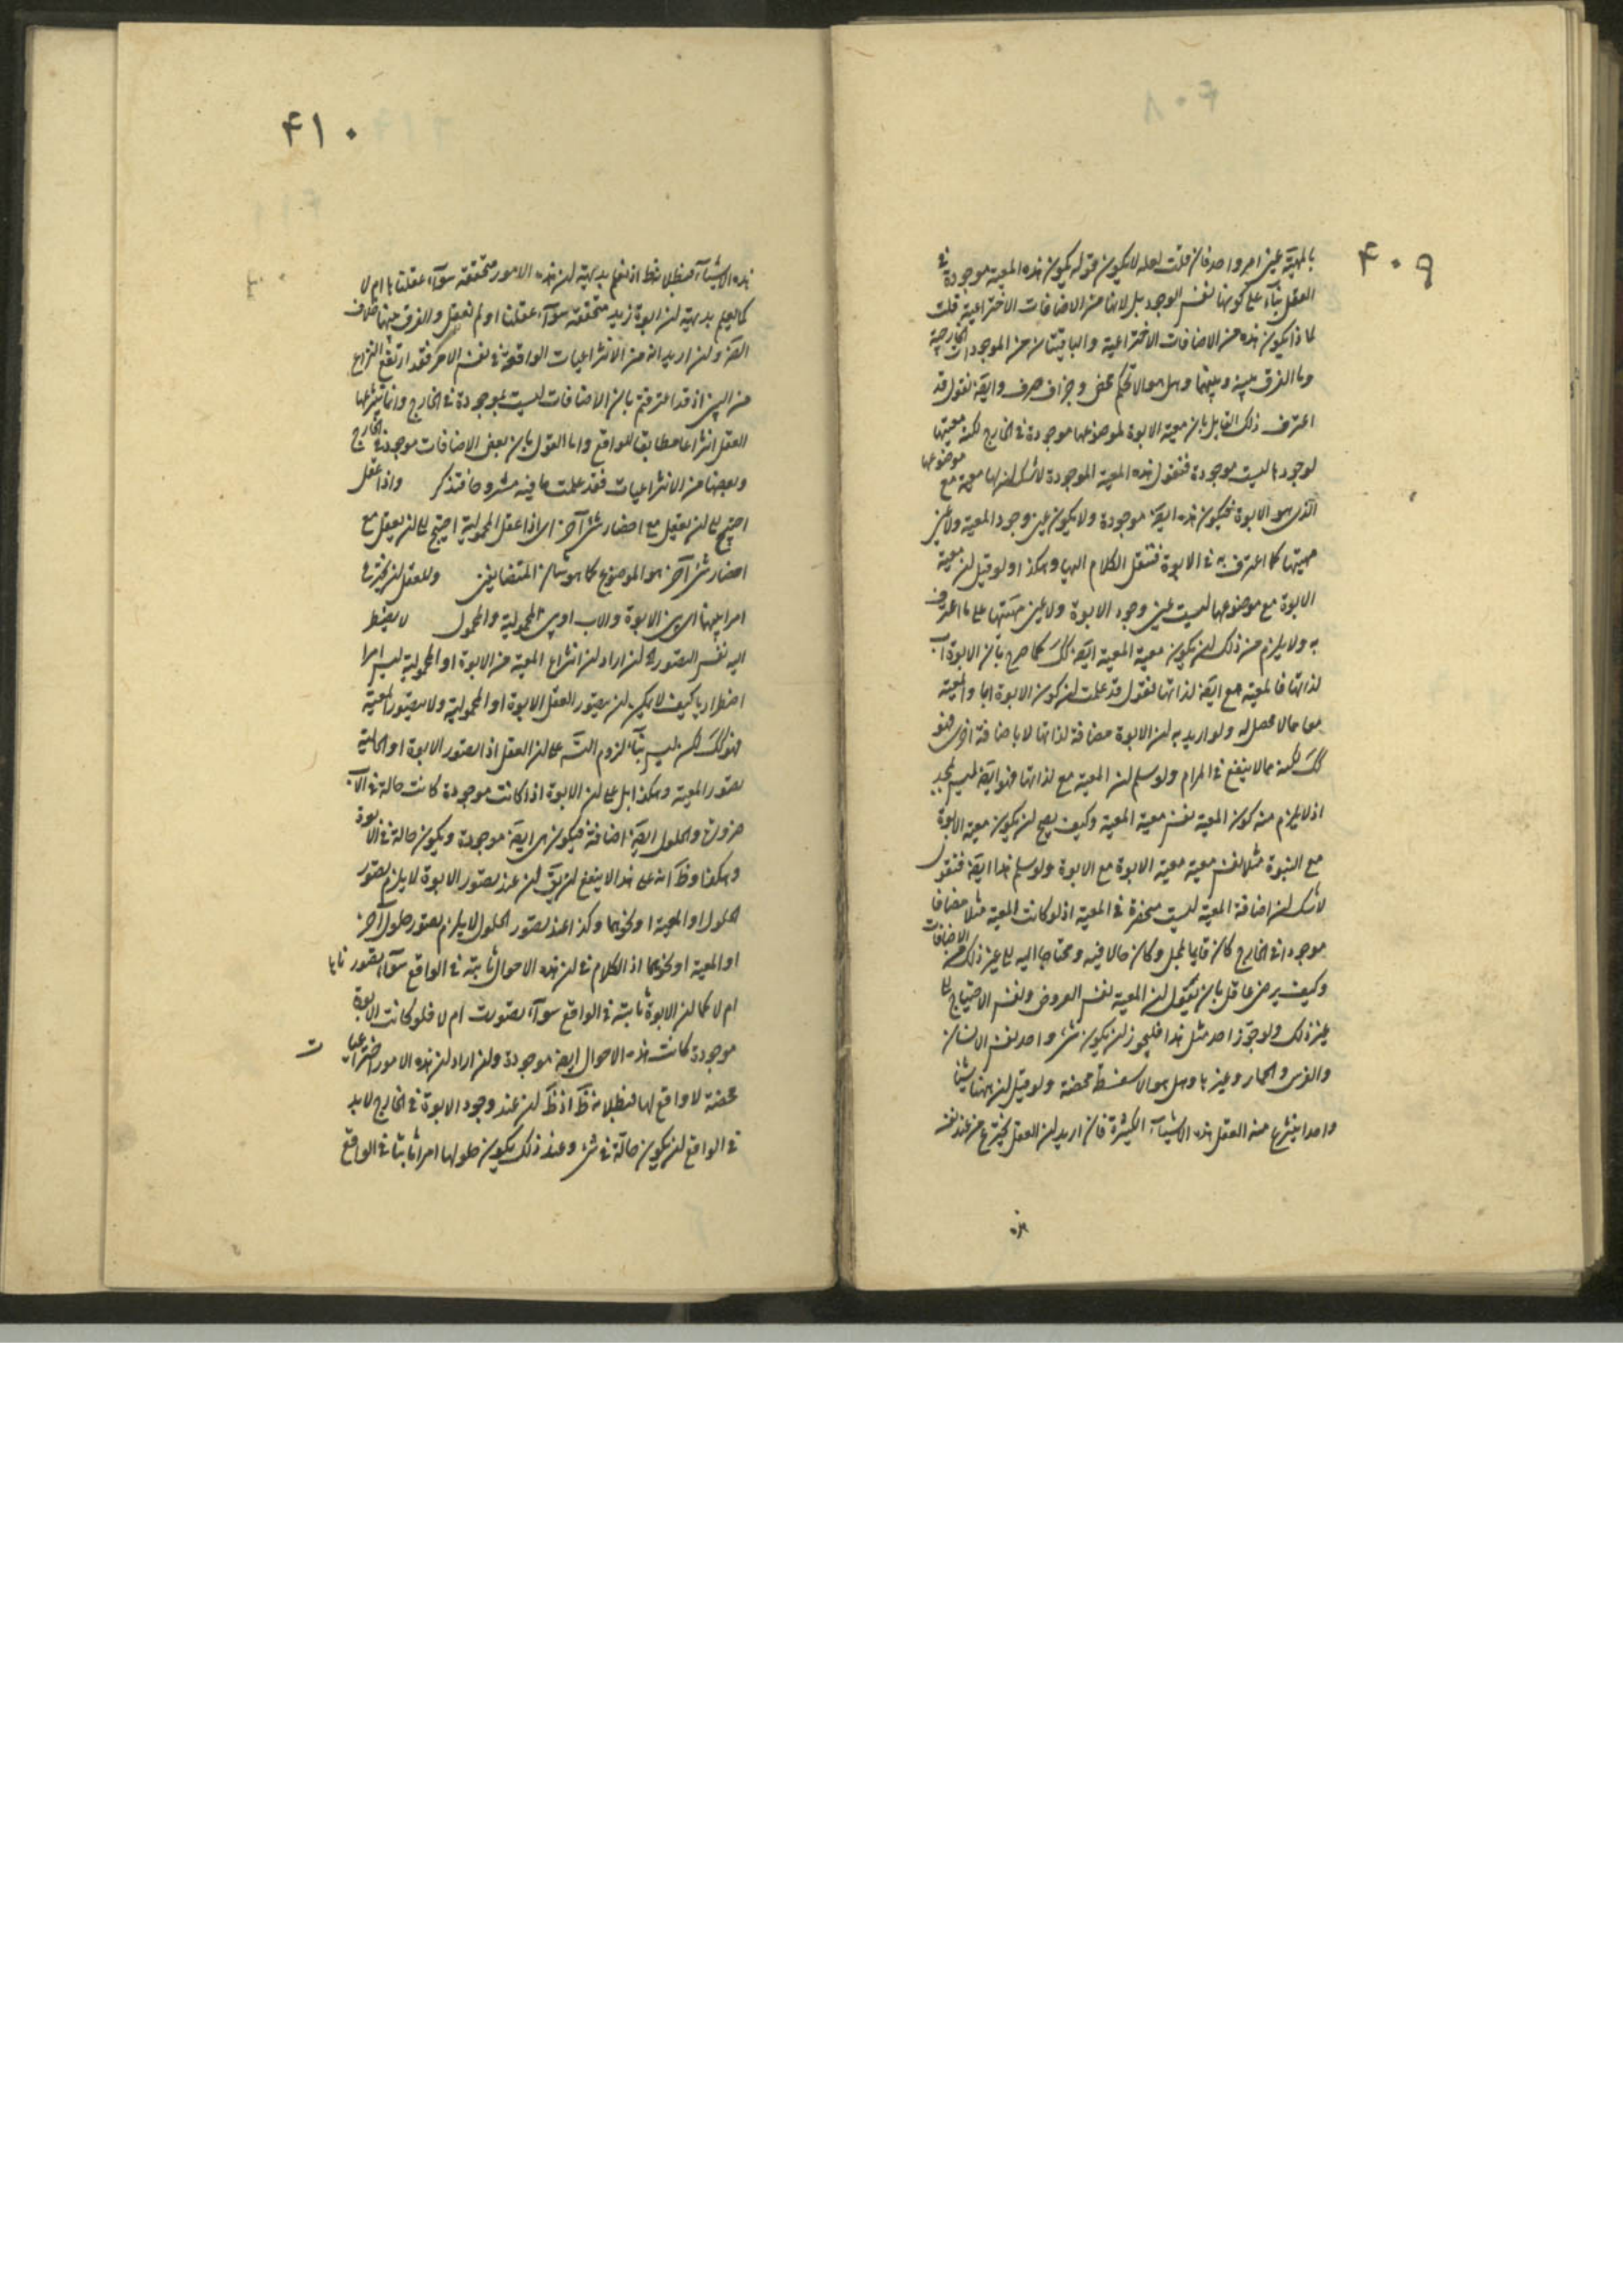 ۴۰۹
بالمهية عين امر واحد فان قلت لعله لا يكون قوله يكون هذه المعية موجودة في
العقل بناء على كونها نفس الوجود بل لانها من الاضافات الاختراعية قلت
لماذا يكون هذه من الاضافات الاختراعية والباقيتان من الموجودات الخارجية
وما الفرق بينه وبينهما وهل هو الا تحكم محض وجزاف صرف وايضا نقول قد
اعترف ذلك القايل بان معية الابوة لموضوعها موجودة في الخارج لكنه معيتها
لوجودها ليست موجودة فنقول هذه المعية الموجودة لا شك ان لها معية مع موضوعها
الذى هو الابوة فيكون هذه ايضا موجودة ولا يكون عين وجود المعية ولا عين
مهيتها كما اعترف به في الابوة فننقل الكلام اليها وهكذا ولو قيل ان معية
الابوة مع موضوعها ليست عين وجود الابوة ولا عين مهيتها على ما اعترف
به ولا يلزم من ذلك ان يكون معية المعية ايضا كك كما صرح بان الابوة اب
لذاتها فالمعية مع ايضا لذاتها فنقول قد علمت ان كون الابوة ابا والمعية
معا مما لا محصل له ولو اريد به ان الابوة مضافة لذاتها لا باضافة اخرى فهو
كك لكنه مما لا ينفع في المرام ولو سلم ان المعية مع لذاتها فهو ايضا ليس بمجد
اذ لا يلزم منه كون المعية نفس معية المعية وكيف يصح ان يكون معية الابوة
مع البنوة مثلا نفس معية معية الابوة مع الابوة ولو سلم هذا ايضا فنقول
لا شك ان اضافة المعية ليست منحصرة في المعية اذ لو كانت المعية مثلا مضافا
موجودا في الخارج كان قايما بمحل وكان حالا فيه ومحتاجا اليه الى غير ذلك من الاضافات
وكيف يرضى عاقل بان يقول ان المعية نفس العروض ونفس الاحتياج الى
غير ذلك ولو جوز احد مثل هذا فليجوز ان يكون شئ واحد نفس الانسان
والفرس والحمار وغيرها وهل هو الا سفسطة محضة ولو قيل ان ههنا شيئا
واحدا ينتزع منه العقل هذه الاشياء الكثيرة فان اريد ان العقل يخترع من عند نفسه
هذه
۴۱۰
هذه الاشياء فبطلانه ظ اذ نعلم بديهة ان هذه الامور متحققة سواء عقلناها ام لا
كما نعلم بديهة ان ابوة زيد متحققة سواء عقلنا او لم نعقل والفرق بينهما خلاف
الض وان اريد انه من الانتزاعيات الواقعة في نفس الامر فقد ارتفع النزاع
من البين اذ قد اعترفتم بان الاضافات ليست بموجودة في الخارج وانما ينتزعها
العقل انتزاعا مطابقا للواقع واما القول بان بعض الاضافات موجودة في الخارج
وبعضها من الانتزاعيات فقد علمت ما فيه مشروحا فتذكر واذا عقل
احتيج الى ان يعقل مع احضار شئ آخر اى اذا عقل المحمولية احتيج الى ان يعقل مع
احضار شئ آخر هو الموضوع كما هو شان المتضايفين وللعقل ان يخترع
امرا بينهما اى بين الابوة والاب او بين المحمولية والمحمول لا يضطر
اليه نفس التصور ان اراد ان انتزاع المعية من الابوة او المحمولية ليس امرا
اضطراريا كيف لا يمكن ان يتصور العقل الابوة او المحمولية ولا يتصور المعية
فهو كك لكن ليس بناء لزوم التس على ان العقل اذا تصور الابوة او الحالية
تصور المعية وهكذا بل على ان الابوة اذا كانت موجودة كانت حالة في الاب
ضرورة والحلول ايضا اضافة فيكون هى ايضا موجودة ويكون حالة في الابوة
وهكذا وظ انه على هذا لا ينفع ان يق ان عند تصور الابوة لا يلزم تصور
الحلول او المعية او نحوهما وكذا عند تصور الحلول لا يلزم تصور حلول آخر
او المعية او نحوهما اذ الكلام في ان هذه الاحوال ثابتة في الواقع سواء تصورناها
ام لا كما ان الابوة ثابتة في الواقع سواء تصورت ام لا فلو كانت الابوة
موجودة كانت هذه الاحوال ايضا موجودة وان اراد ان هذه الامور اختراعيات
محضة لا واقع لها فبطلانه ظ اذ ظ ان عند وجود الابوة في الخارج لا بد
في الواقع ان يكون حالة في شئ وعند ذلك يكون حلولها امرا ثابتا في الواقع